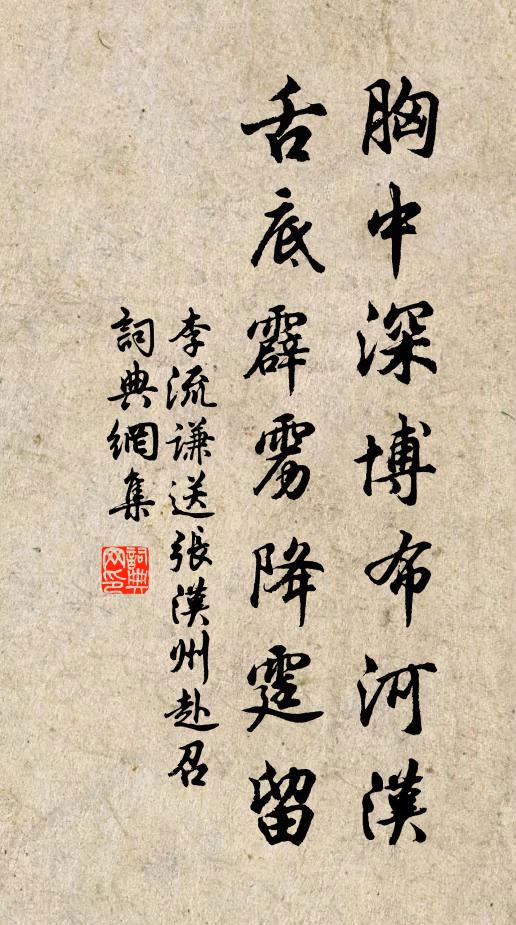 胸中深博布河漢
舌底霹雳降霆留
李流謙送張漢州赴召
詞典網集
詞典网印